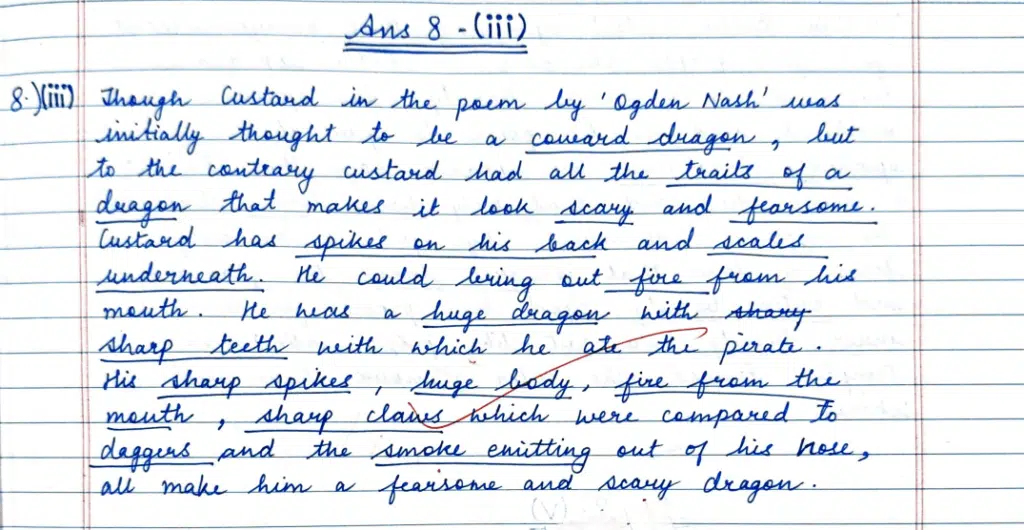 Ans 8 - (iii)
8.)(iii) Though Custard in the poem by 'Ogden Nash' was
initially thought to be a coward dragon, but
to the contrary custard had all the traits of a
dragon that makes it look scary and fearsome.
Custard has spikes on his back and scales
underneath. He could bring out fire from his
mouth. He was a huge dragon with shary
sharp teeth with which he ate the pirate.
His sharp spikes, huge body, fire from the
mouth, sharp claws which were compared to
daggers and the smoke emitting out of his nose,
all make him a fearsome and scary dragon.
(V)